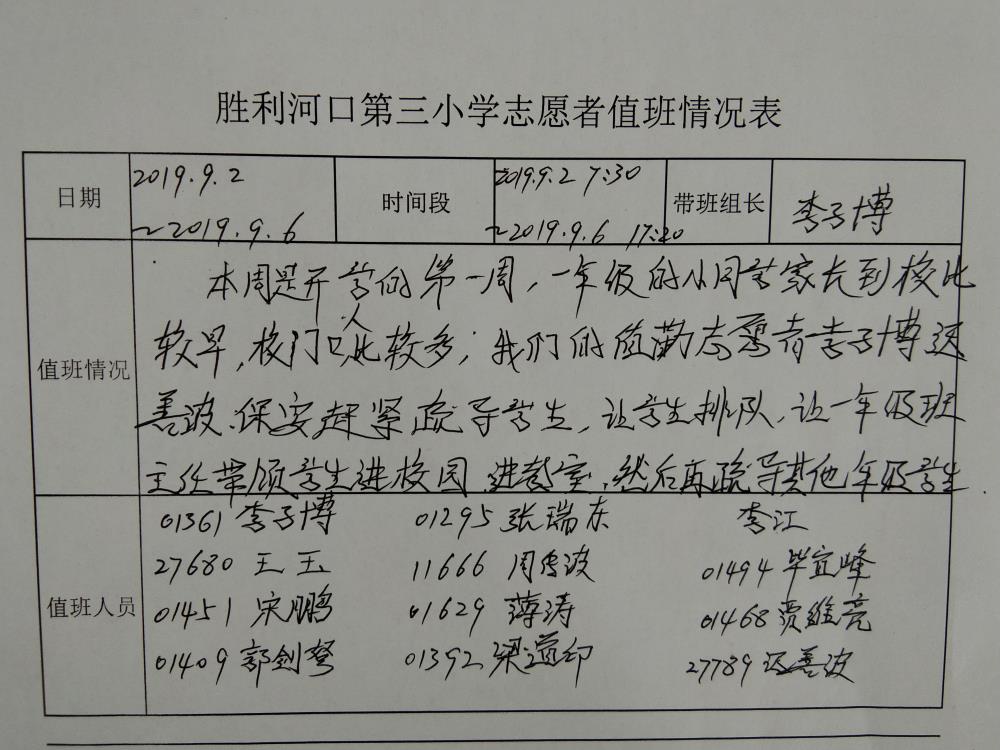 胜利河口第三小学志愿者值班情况表
日期 2019.9.2 时间段 2019.9.2 7:30 带班组长 李子博
~2019.9.6 ~2019.9.6 17:20
本周是开学的第一周，一年级的小同学家长到校比
值班情况 较早，校门口人比较多；我们的值勤志愿者李子博
善波、保安赶紧疏导学生，让学生排队，让一年级班
主任带领学生进校园、进教室，然后再疏导其他年级学生
01361 李子博 01295 张瑞东 李江
27680 王玉 11666 周传波 01494 毕宜峰
值班人员 01451 宋鹏 01629 薄涛 01468 贾维亮
01409 郭剑 01392 梁道印 27789 善波